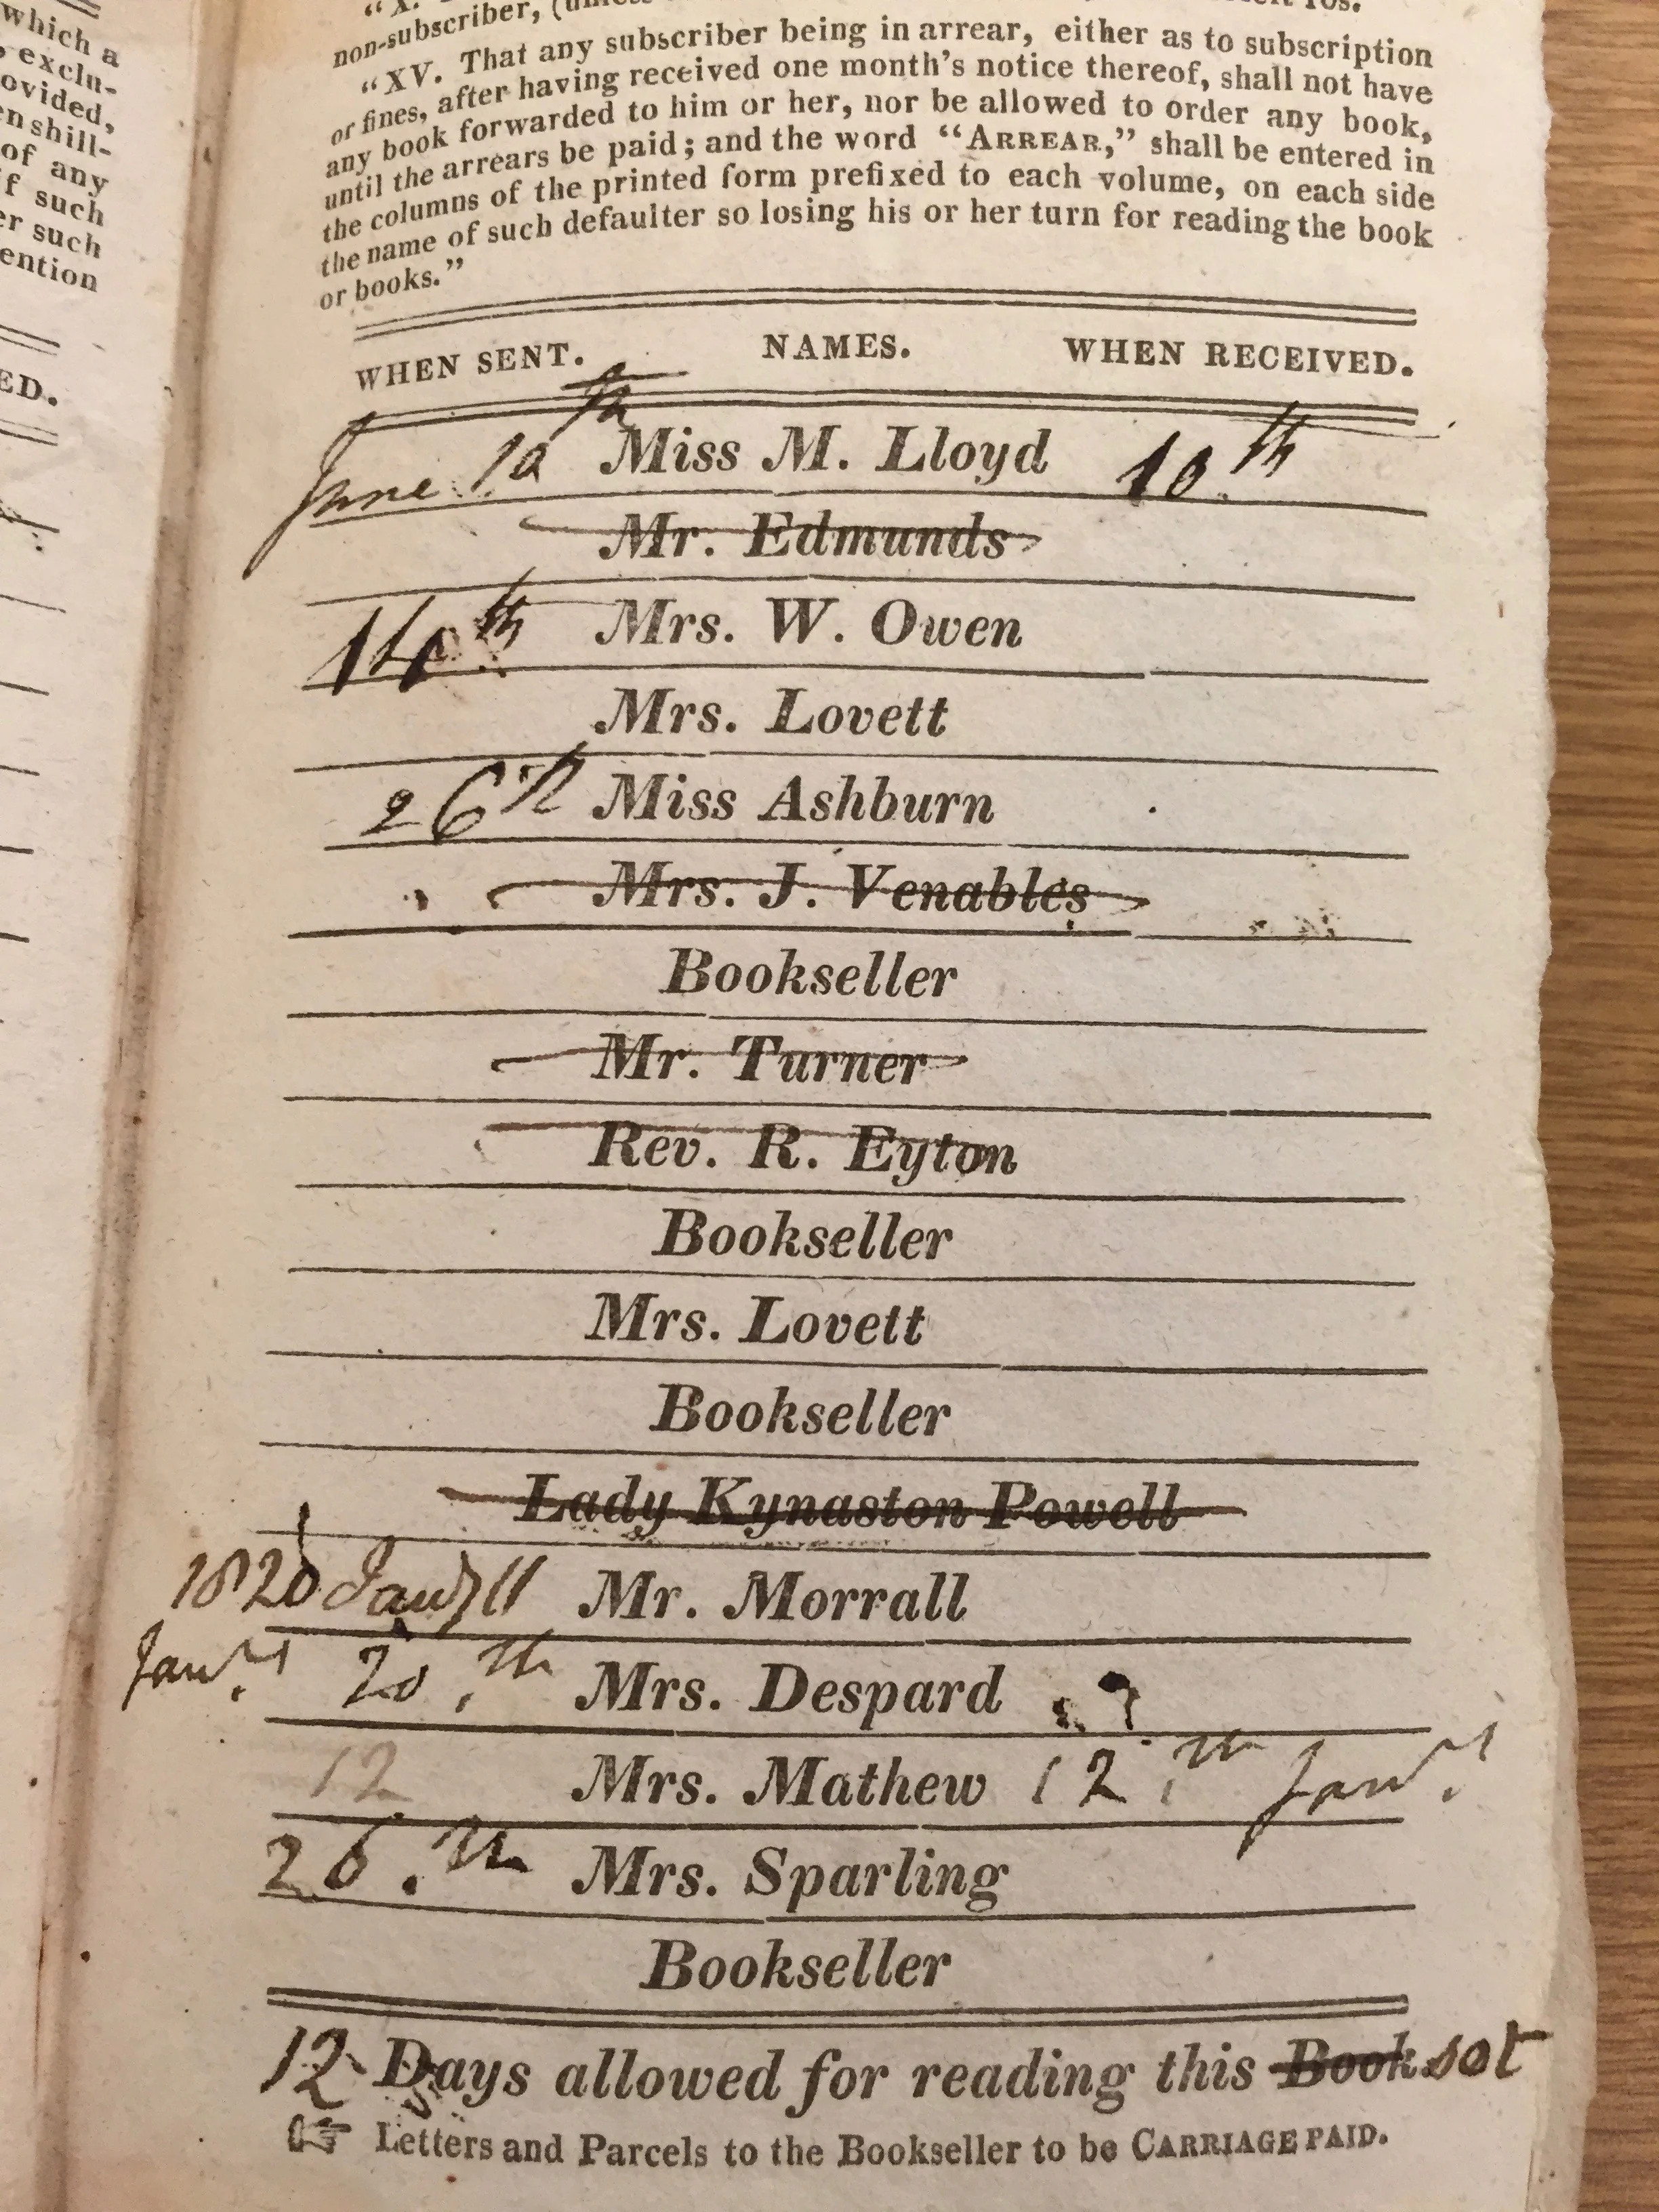 which a
exclu-
ovided,
en shill-
of any
f such
er such
ention
ED.
"X.
non-subscriber,
"XV. That any subscriber being in arrear, either as to subscription
or fines, after having received one month's notice thereof, shall not have
any book forwarded to him or her, nor be allowed to order any book,
until the arrears be paid; and the word "ARREAR," shall be entered in
the columns of the printed form prefixed to each volume, on each side
the name of such defaulter so losing his or her turn for reading the book
or books."
WHEN SENT. NAMES. WHEN RECEIVED.
June 10th Miss M. Lloyd 10th
Mr. Edmunds
Mrs. W. Owen
Mrs. Lovett
26th Miss Ashburn
Mrs. J. Venables
Bookseller
Mr. Turner
Rev. R. Eyton
Bookseller
Mrs. Lovett
Bookseller
Lady Kynaston Powell
1820 Jany 11 Mr. Morrall
Jany. 20.th Mrs. Despard
12 Mrs. Mathew 12.th Jany.
26.th Mrs. Sparling
Bookseller
12 Days allowed for reading this Book set
☞ Letters and Parcels to the Bookseller to be CARRIAGE PAID.